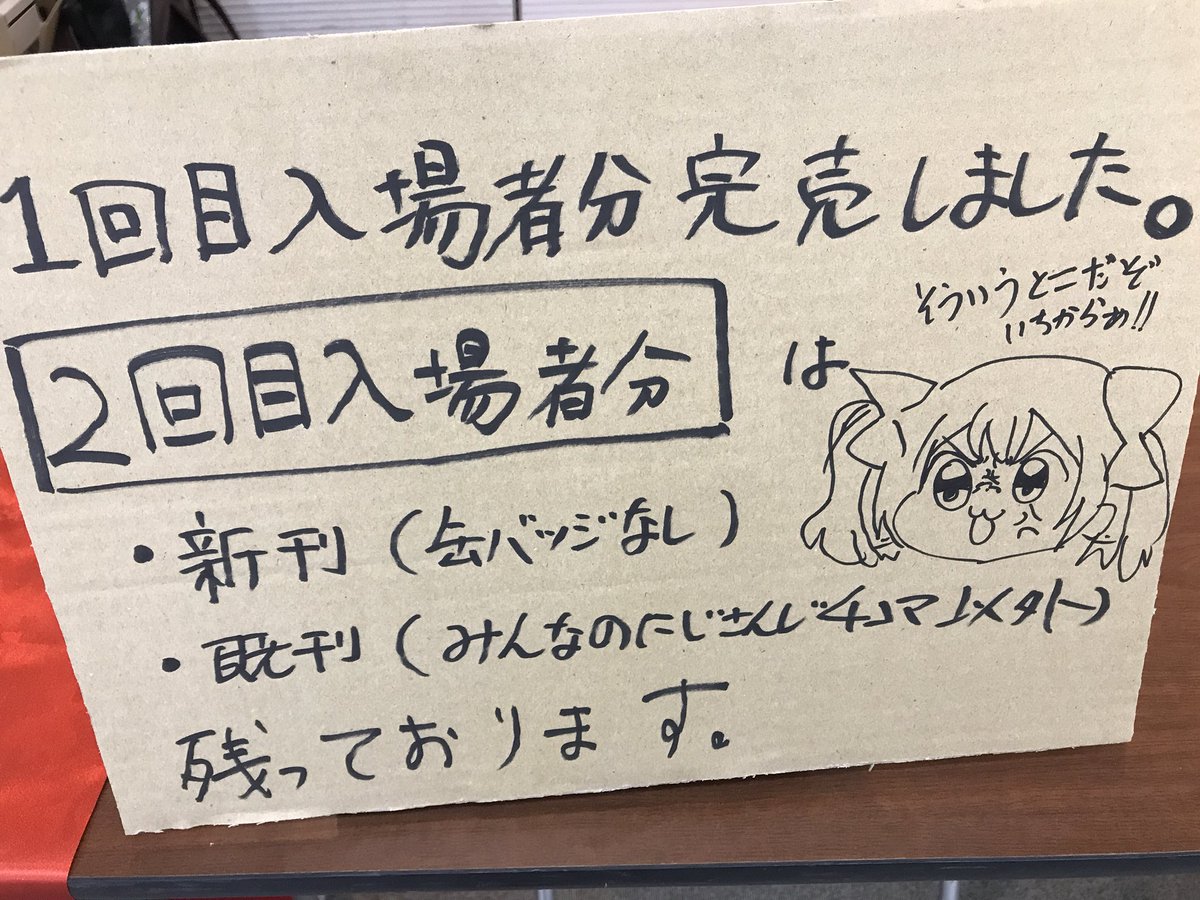 1回目入場者分完売しました。
そういうとこだぞ
いちからぁ!!
2回目入場者分は
・新刊(缶バッジなし)
・既刊(みんなのにじさんじ
残っております。